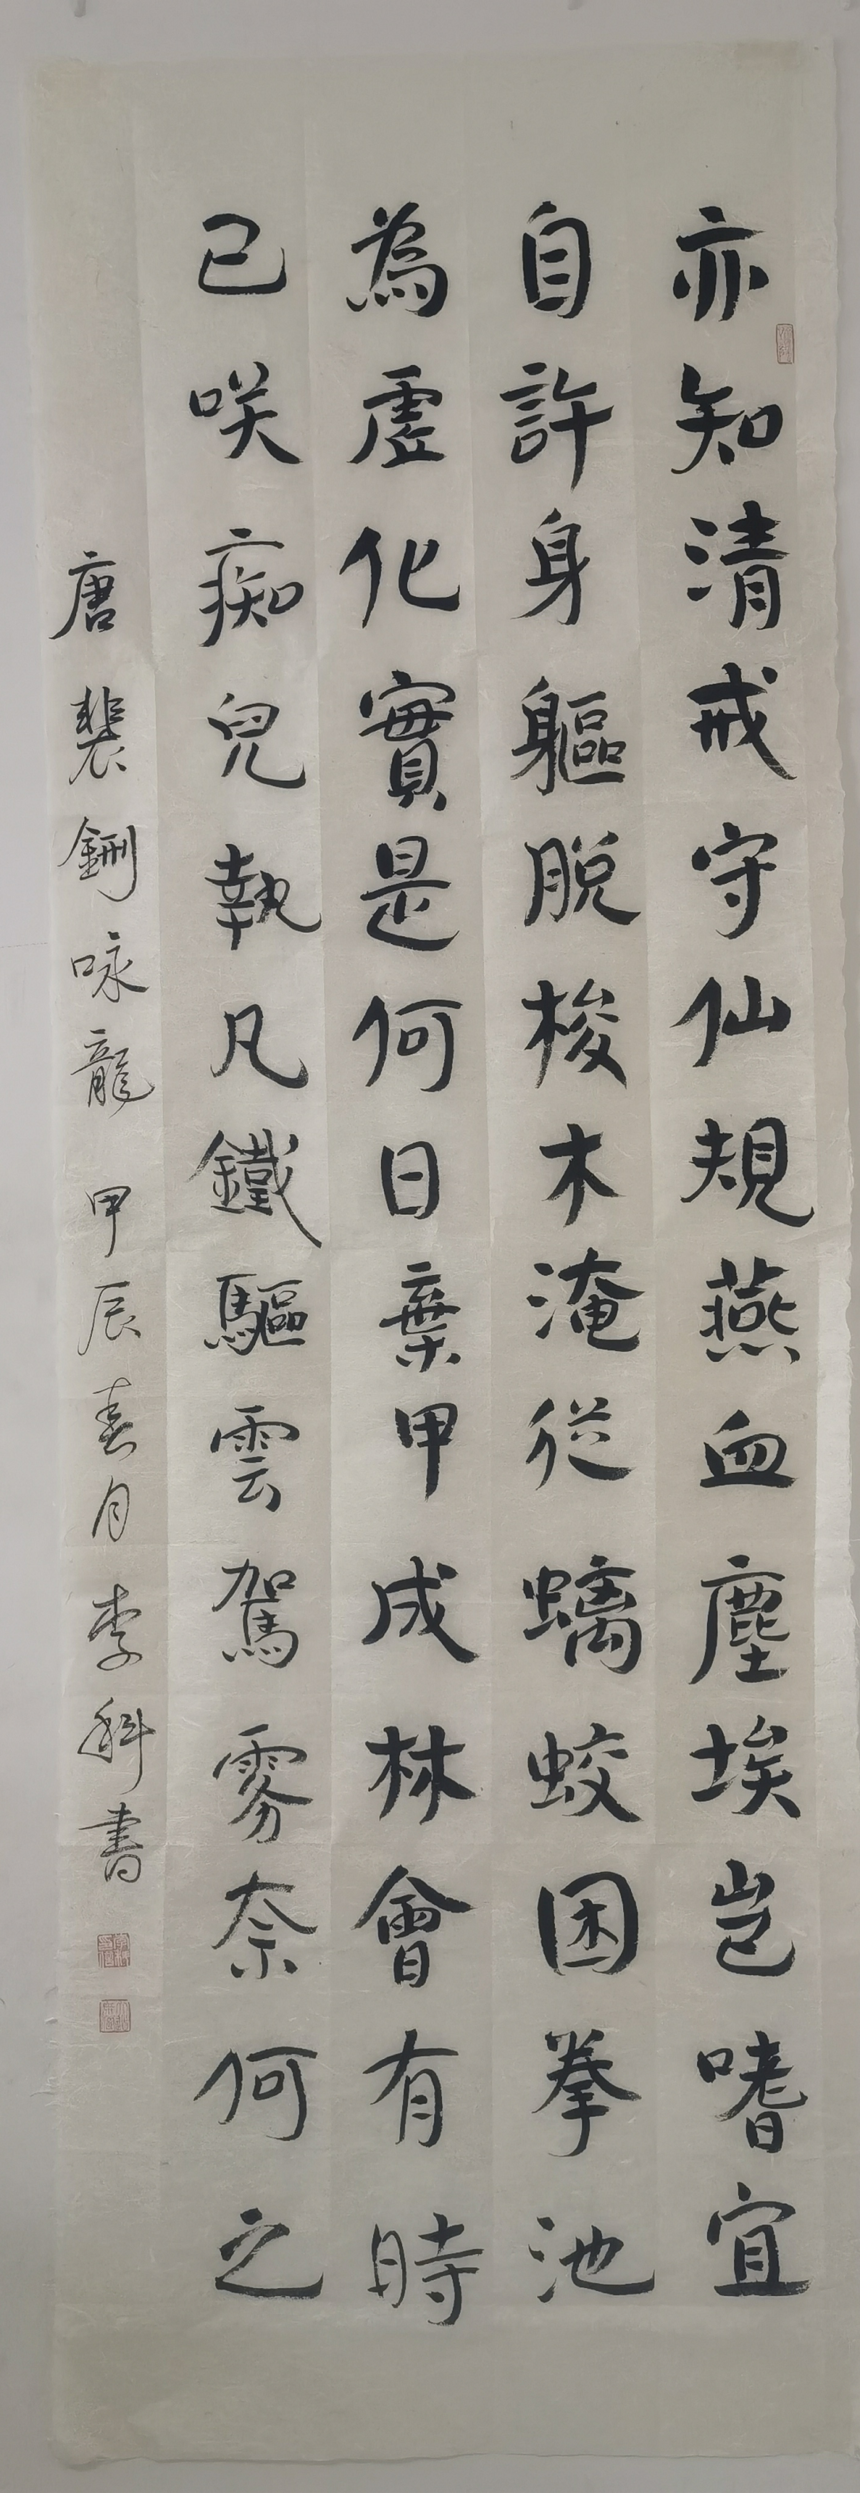 亦知清戒守仙規燕血塵埃豈嗜宜
自許身軀脫梭木淹從螭蛟困拳池
為虛化實是何日棄甲成林會有時
已咲痴兒執凡鐵驅雲駕霧奈何之
唐裴鉶咏龍 甲辰春月李科書